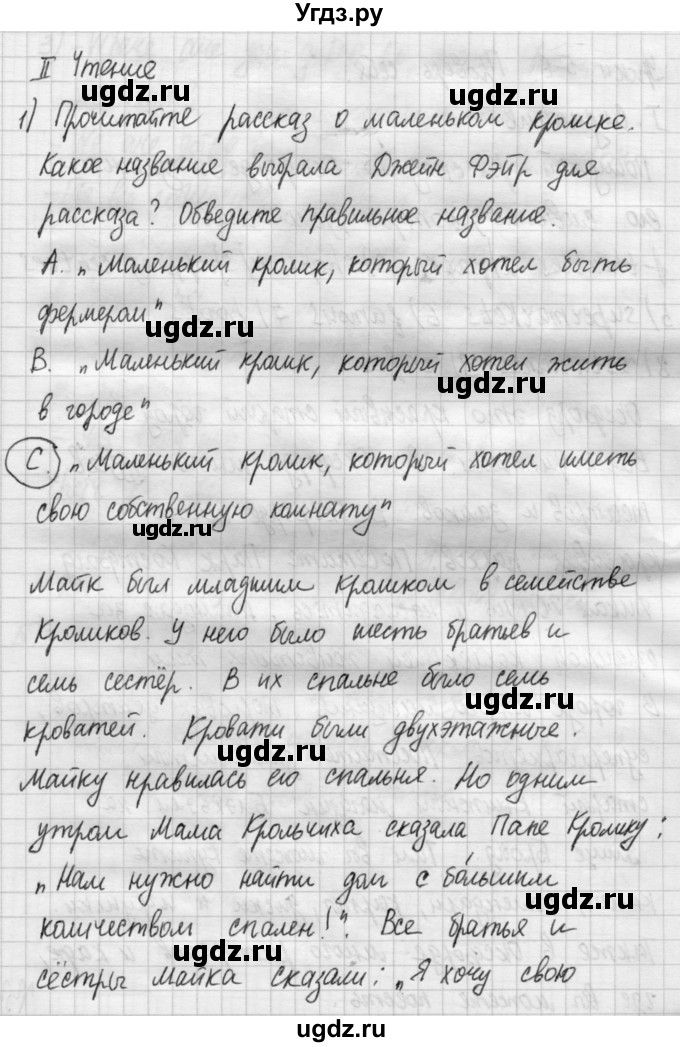 Угдз.ру
II Чтение
ugdz.ru ugdz.ru
1) Прочитайте рассказ о маленьком кролике.
Какое название выбрала Джейн Фэйр для
ugdz.ru ugdz.ru
рассказа? Обведите правильное название.
A. „Маленький кролик, который хотел быть
фермером"
ugdz.ru
B. „Маленький кролик, который хотел жить
ugdz.ru
в городе"
C. „Маленький кролик, который хотел иметь
свою собственную комнату"
ugdz.ru
Майк был младшим кроликом в семействе
Кроликов. У него было шесть братьев и
ugdz.ru
семь сестёр. В их спальне было семь
ugdz.ru
кроватей. Кровати были двухэтажные.
ugdz.ru
Майку нравилась его спальня. Но одним
утром Мама Крольчиха сказала Папе Кролику:
„Нам нужно найти дом с бо́льшим
ugdz.ru ugdz.ru
количеством спален!". Все братья и
сёстры Майка сказали: „Я хочу свою
ugdz.ru ugdz.ru
ugdz.ru